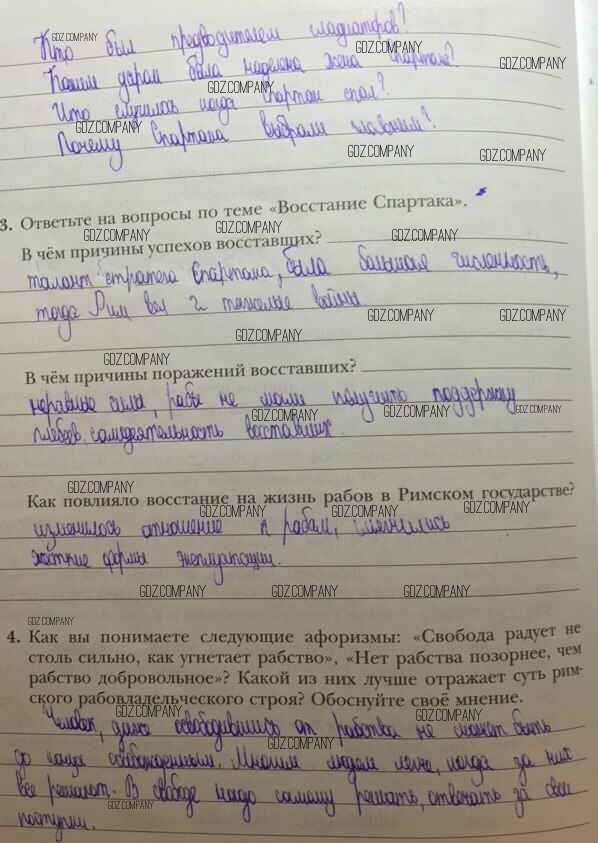 Кто был предводителем гладиаторов?
Каким даром была наделена жена Спартака?
Что случилось когда Спартак спал?
Почему Спартака выбрали главным?
3. Ответьте на вопросы по теме «Восстание Спартака».
В чём причины успехов восставших?
талант стратега Спартака, была большая численность,
тогда Рим вел 2 тяжелые войны
В чём причины поражений восставших?
неравные силы, рабы не могли получить поддержку
плебеев, самодеятельность восставших.
Как повлияло восстание на жизнь рабов в Римском государстве?
изменилось отношение к рабам, смягчились
жесткие формы эксплуатации.
4. Как вы понимаете следующие афоризмы: «Свобода радует не
столь сильно, как угнетает рабство», «Нет рабства позорнее, чем
рабство добровольное»? Какой из них лучше отражает суть рим-
ского рабовладельческого строя? Обоснуйте своё мнение.
Человек, даже освободившись от рабства не может быть
до конца освобожденным. Многим людям легче, когда за них
все решают. В свободе надо самому решать, отвечать за свои
поступки.
GDZ.COMPANY